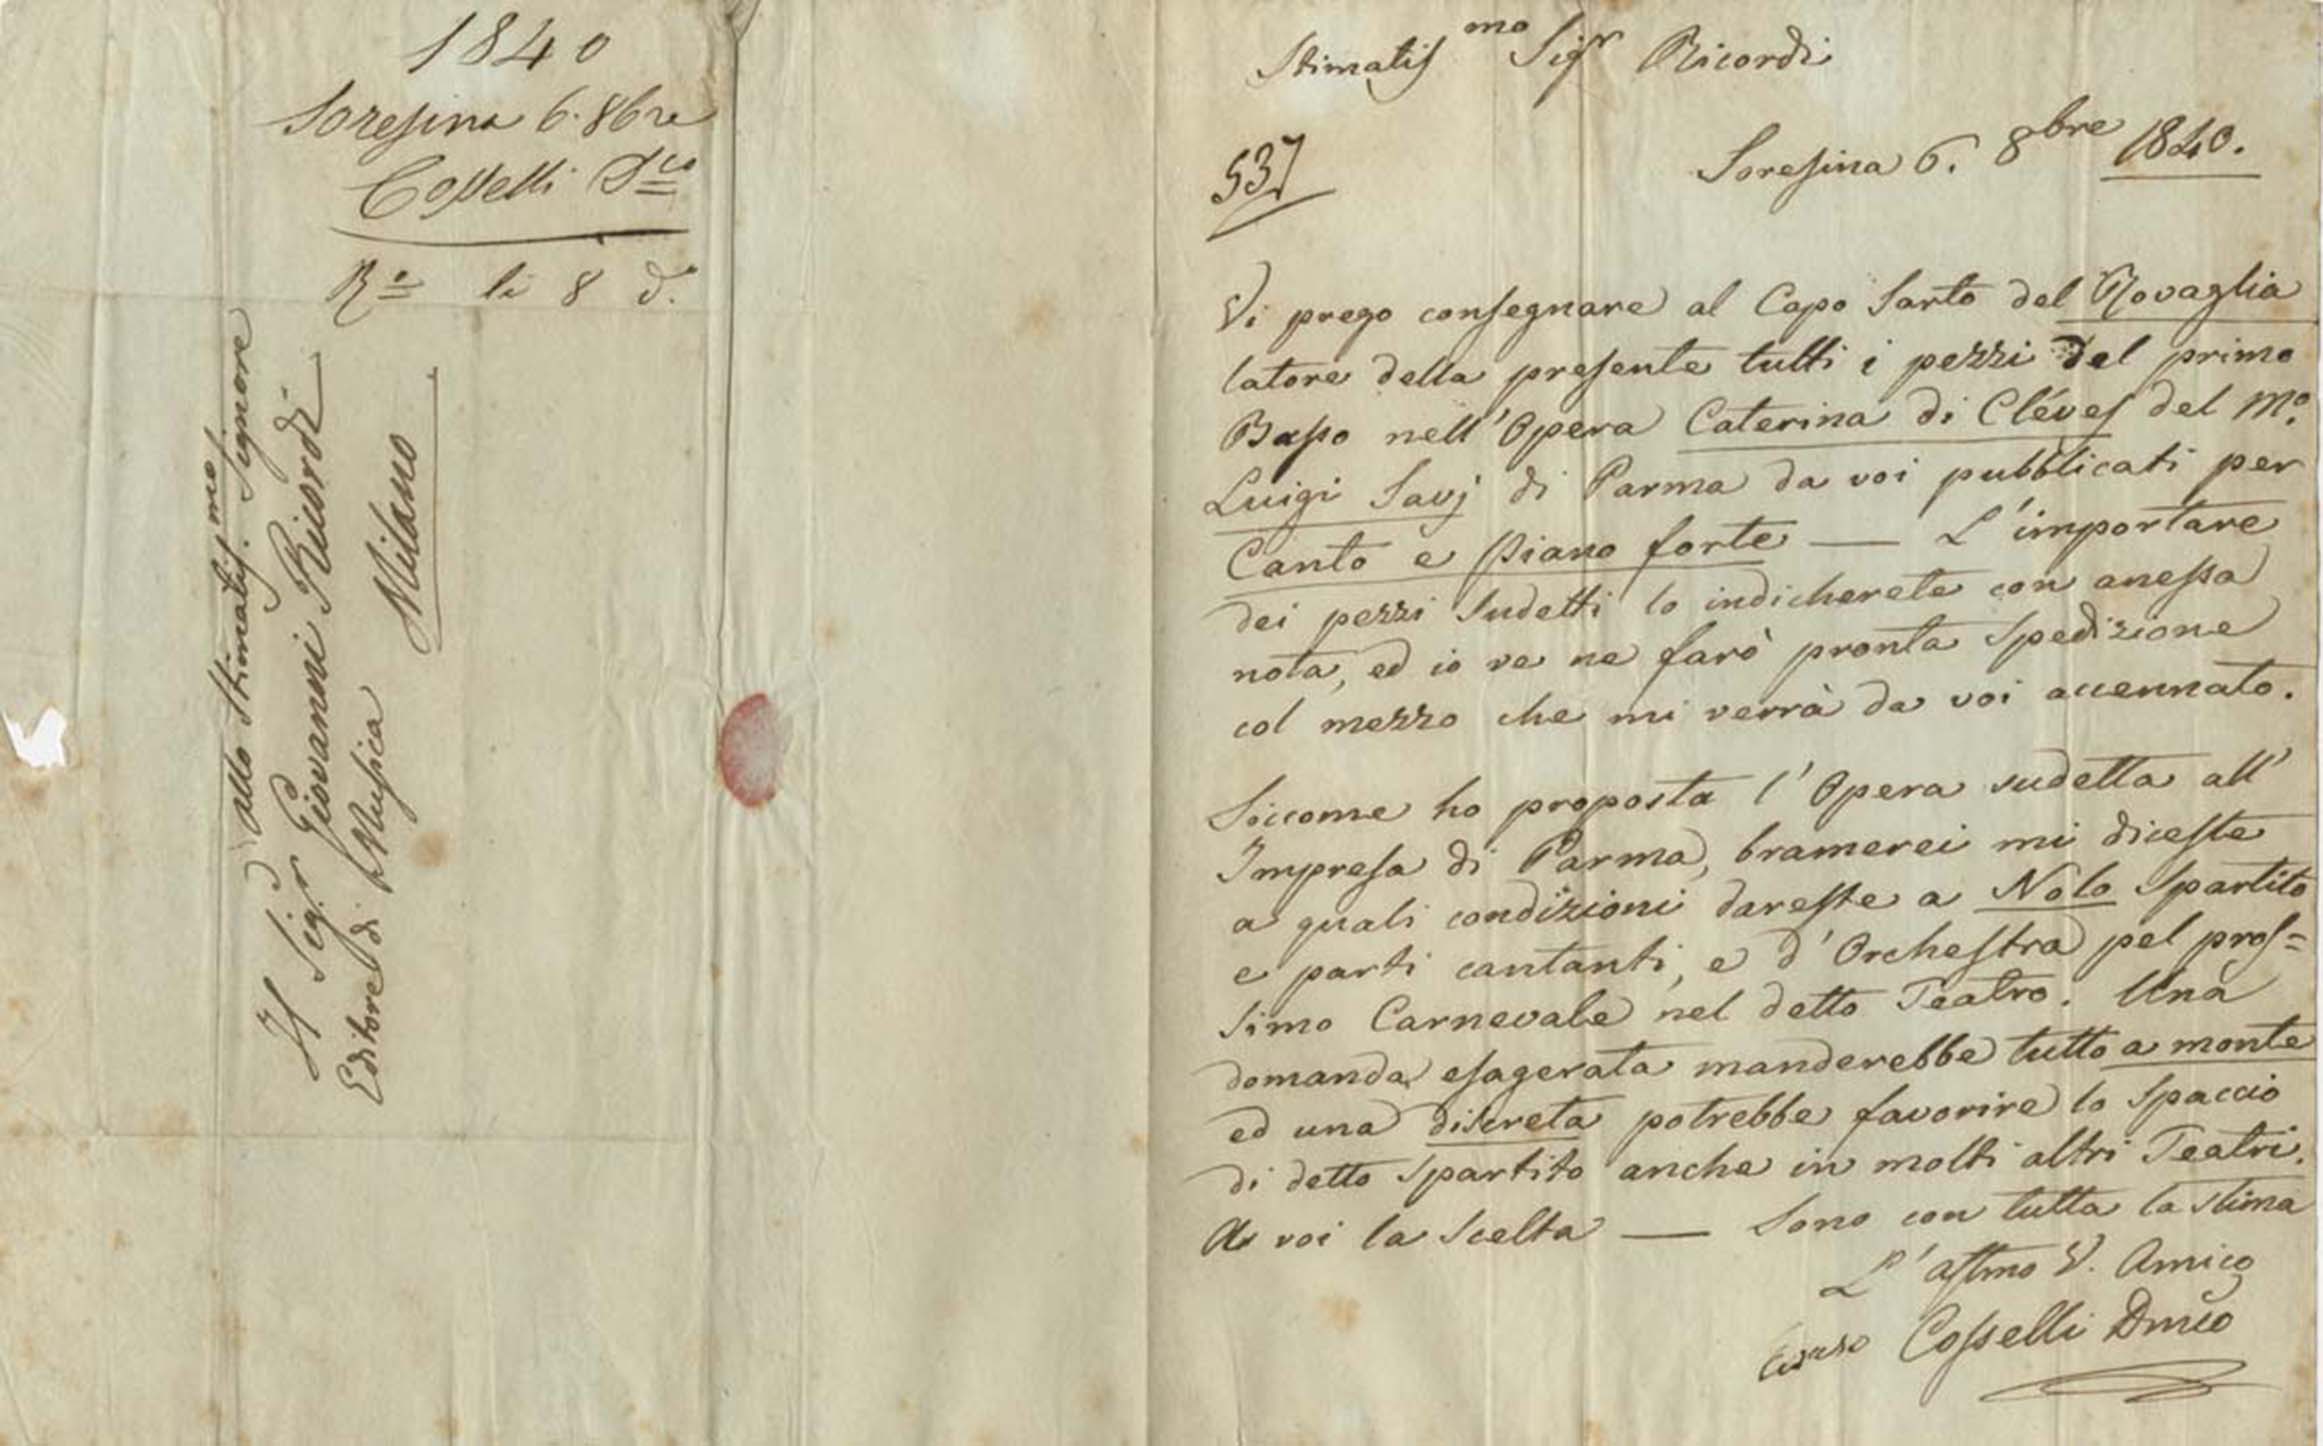 1840
Soresina 6. 8bre
Cosselli Dco
Ra li 8 do.
Allo Stimatis.mo Signore
Il Sigr Giovanni Ricordi
Editore di Musica
Milano
Stimatismo Sigr Ricordi
537
Soresina 6. 8bre 1840.
Vi prego consegnare al Capo Sarto del Rovaglia
latore della presente tutti i pezzi del primo
Basso nell'Opera Caterina di Cléves del Mo.
Luigi Savj di Parma da voi pubblicati per
Canto e Piano forte — L'importare
dei pezzi sudetti lo indicherete con anessa
nota, ed io ve ne farò pronta spedizione
col mezzo che mi verrà da voi accennato.
Siccome ho proposta l'Opera sudetta all'
Impresa di Parma, bramerei mi diceste
a quali condizioni dareste a Nolo Spartito
e parti cantanti, e d'Orchestra pel pros=
simo Carnevale nel detto Teatro. Una
domanda esagerata manderebbe tutto a monte
ed una discreta potrebbe favorire lo spaccio
di detto Spartito anche in molti altri Teatri.
A voi la scelta — Sono con tutta la stima
L'affmo V. Amico
Cosselli Dmco